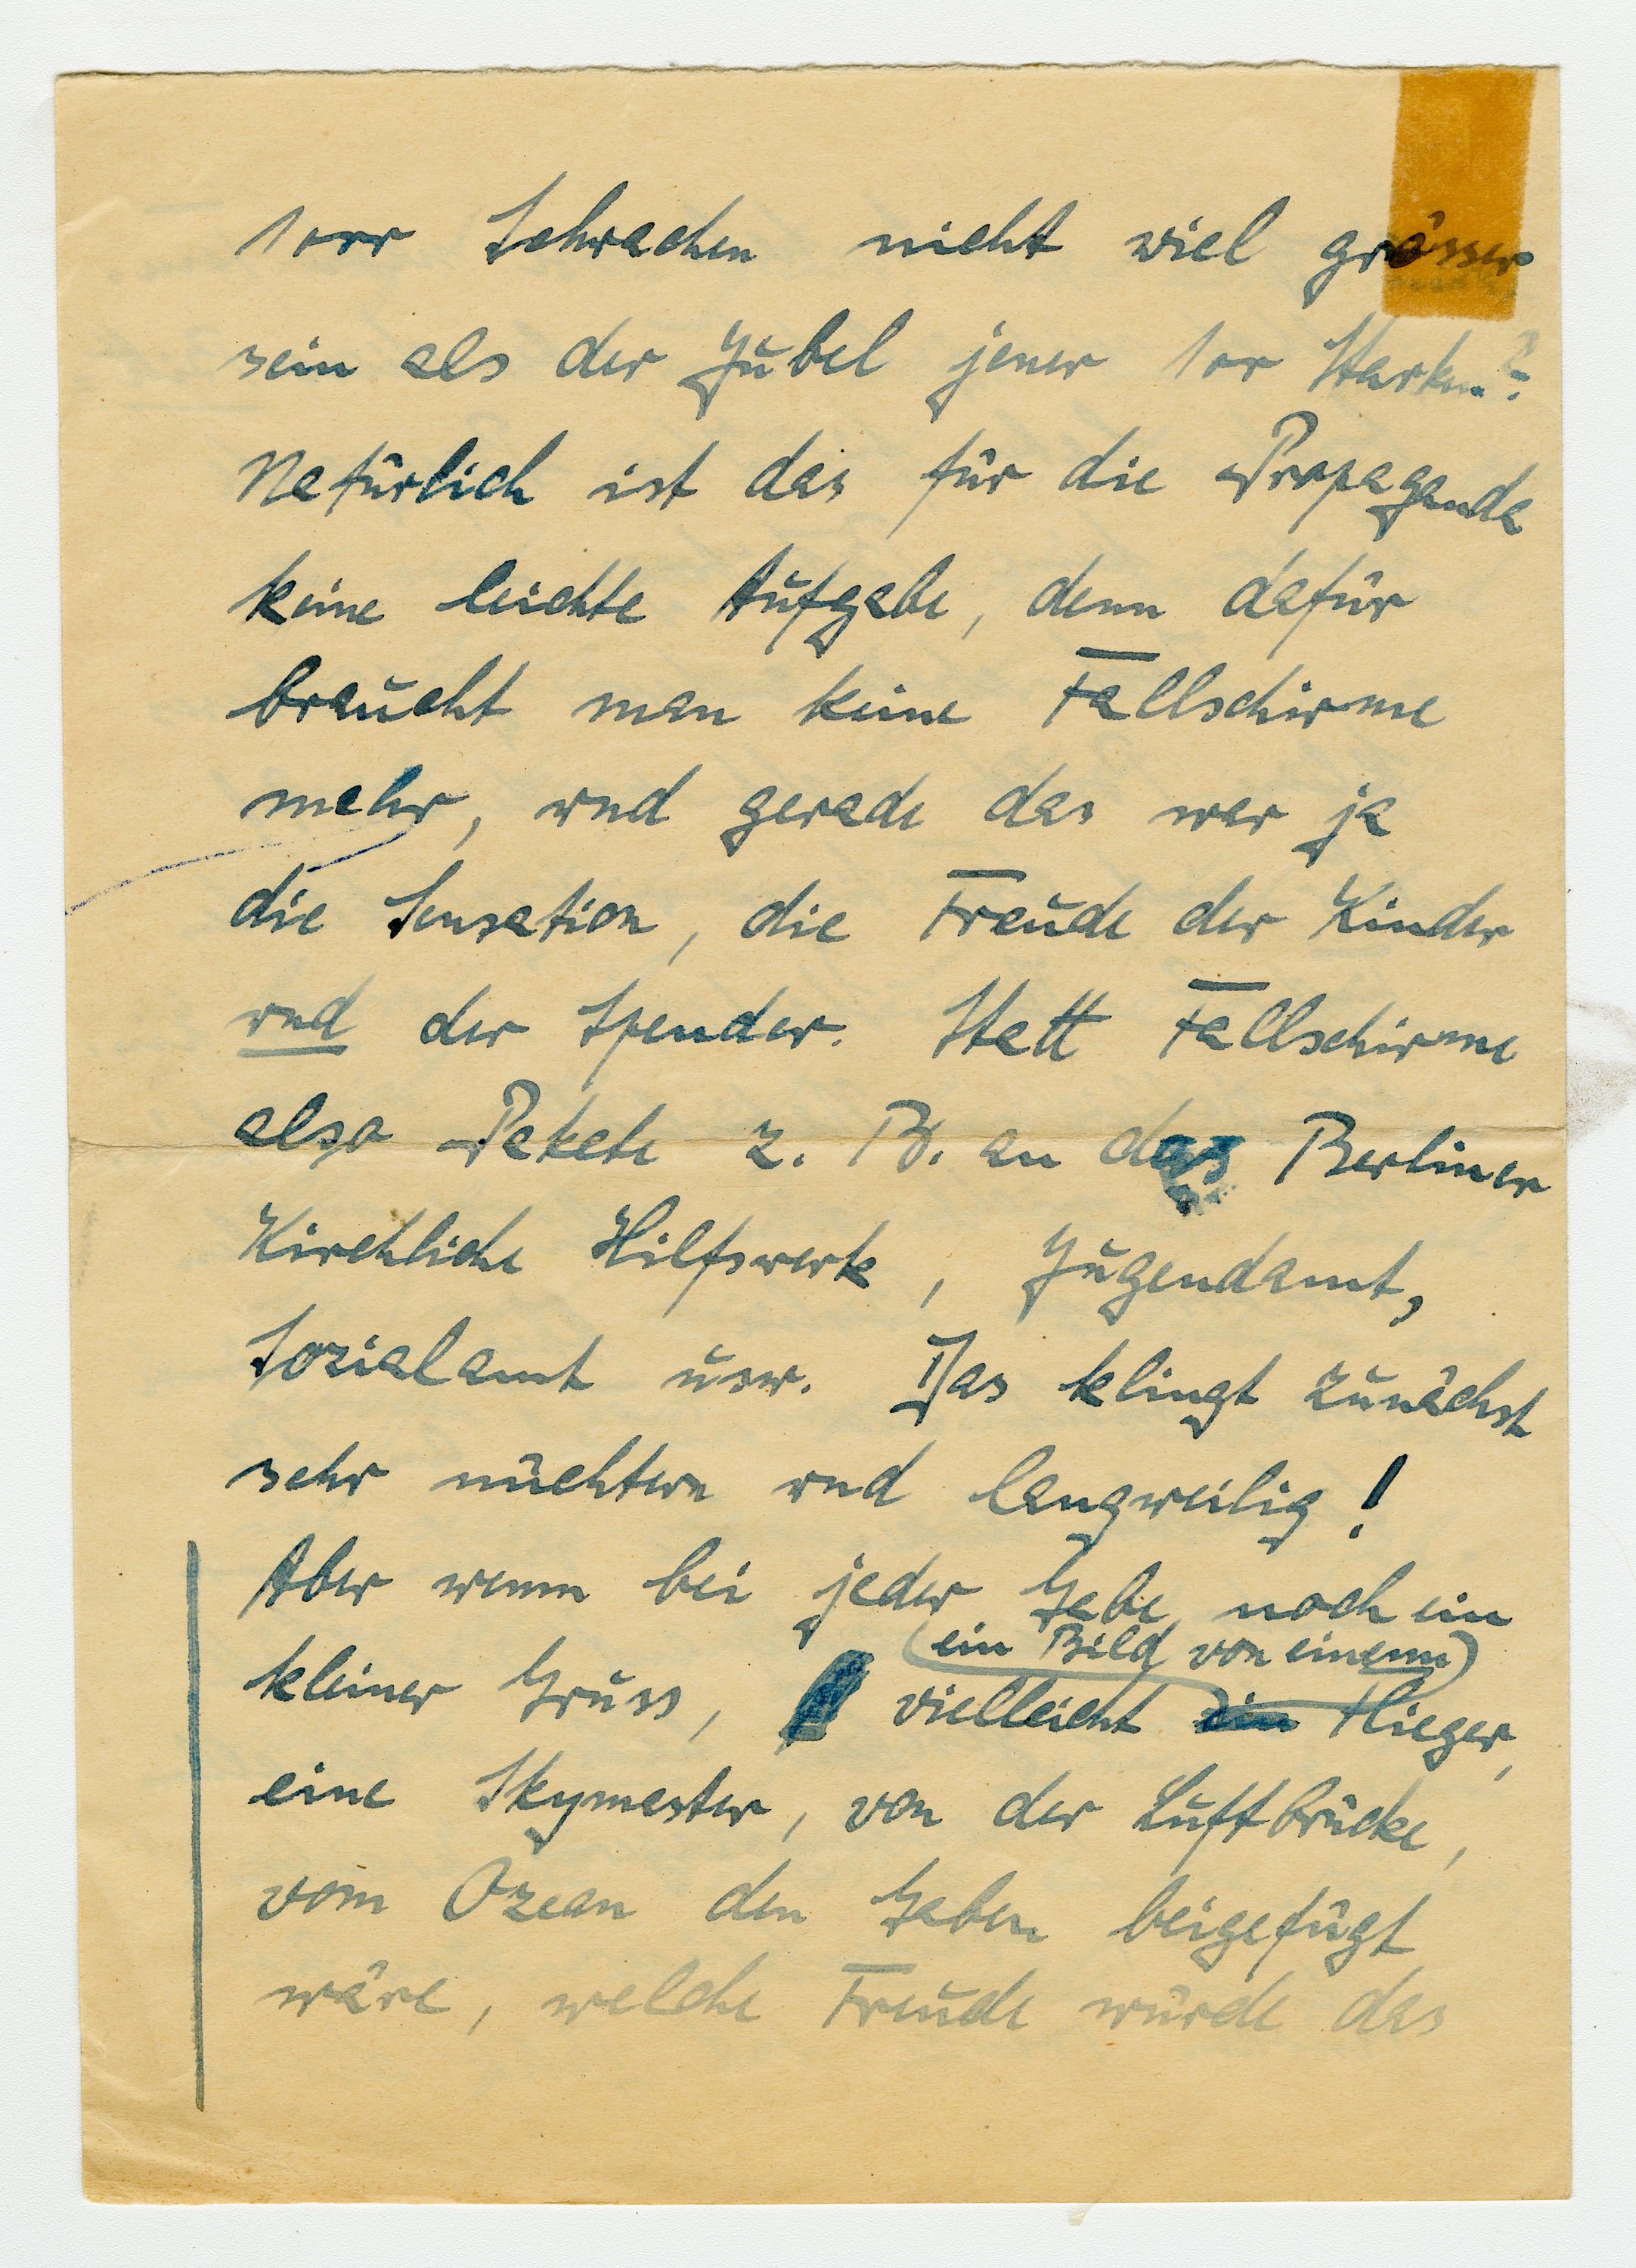 1000 Schwachen nicht viel grösser
sein als der Jubel jener 100 Starken?
Natürlich ist das für die Propaganda
keine leichte Aufgabe, denn dafür
braucht man keine Fallschirme
mehr, und gerade das war ja
die Sensation, die Freude der Kinder
und der Spender. Statt Fallschirme
also Pakete z. B. an das Berliner
Kirchliche Hilfswerk, Jugendamt,
Sozialamt usw. Das klingt zunächst
sehr nüchtern und langweilig!
Aber wenn bei jeder Gabe noch ein
(ein Bild von einem)
kleiner Gruss, vielleicht ein Flieger,
eine Skymaster, von der Luftbrücke,
vom Ozean den Gaben beigefügt
wäre, welche Freude würde das